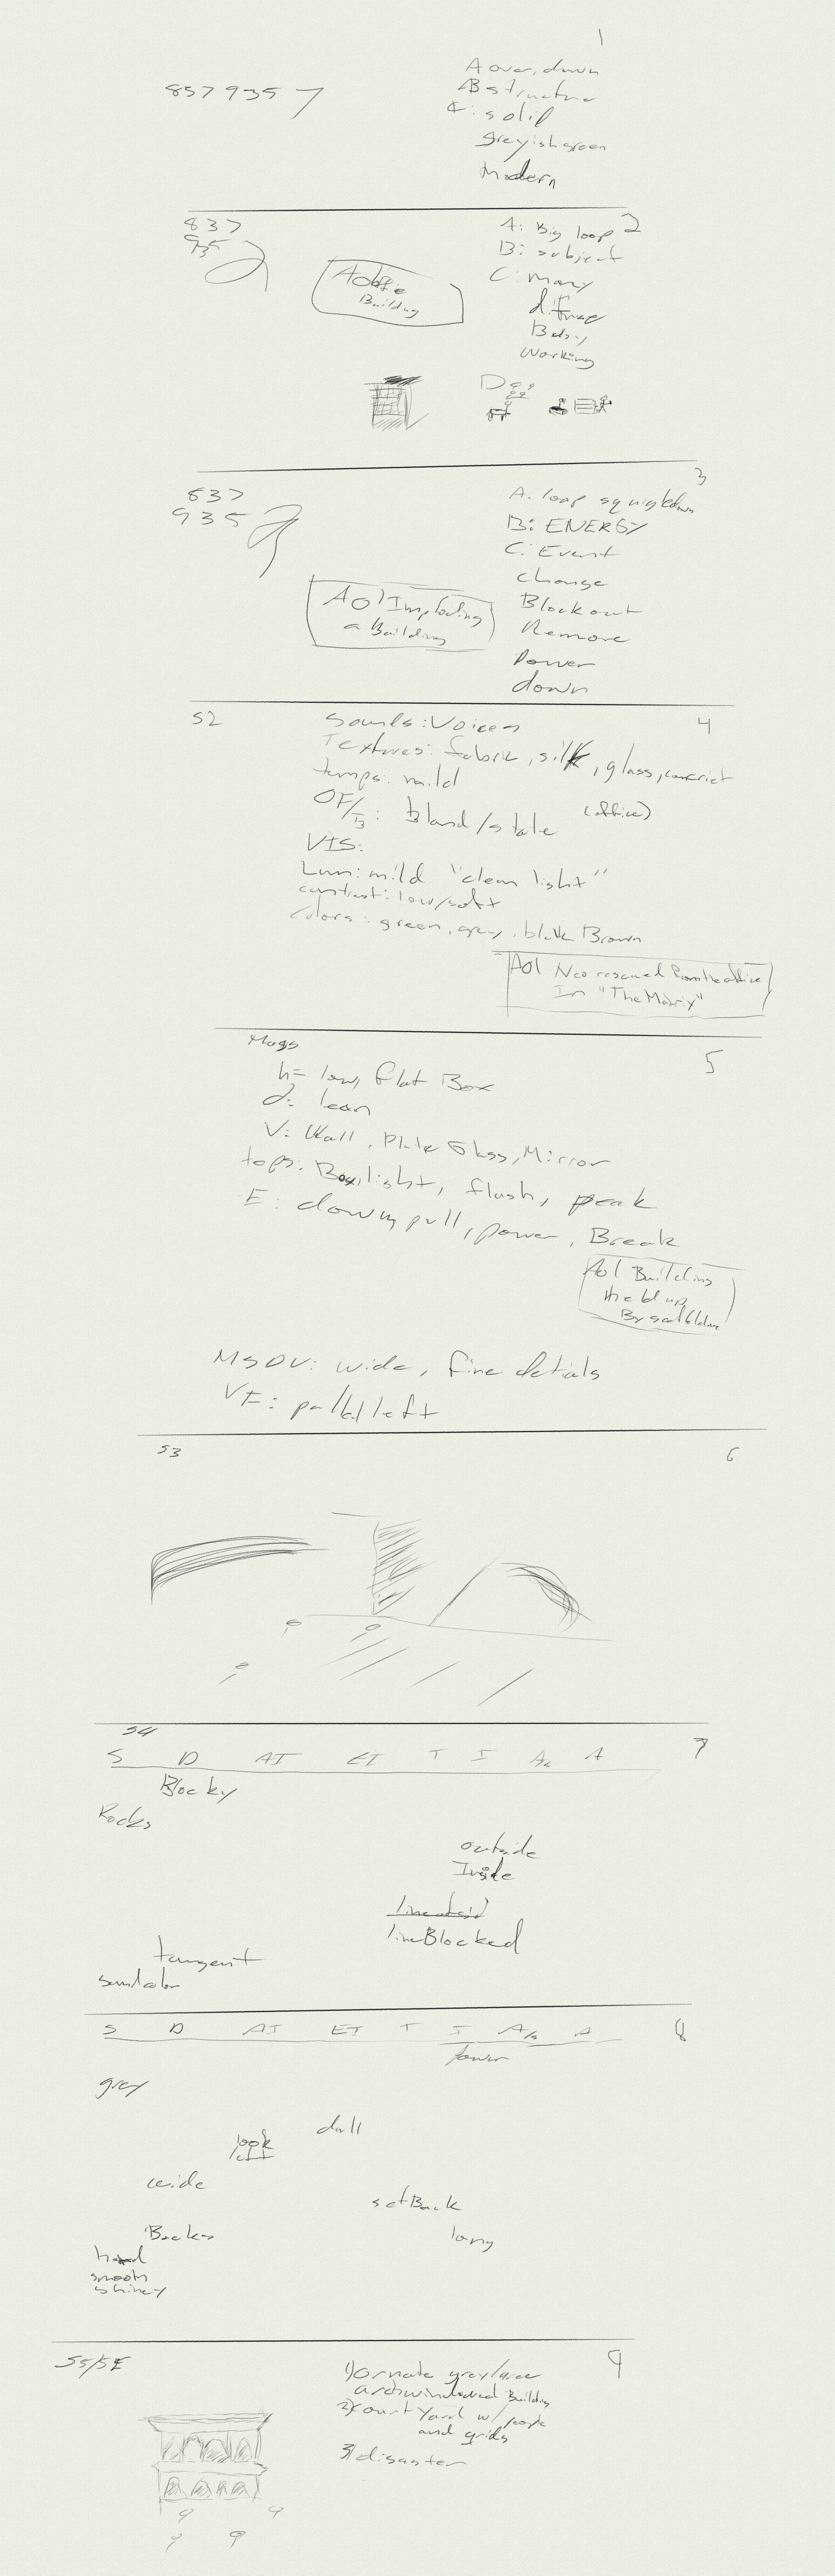 1
8579357
A over, down
B structure
C: solid
greyish green
Modern
2
837
935
A: Big loop
B: subject
C: Many
Busy
Working
Building
D
3
837
935
A: loop squiggle down
B: ENERGY
C: Event
change
Blockout
Remove
Power
down
Aol Imploding
a Building
S2
4
Sounds: Voices
Textures: fabric, silk, glass, concrict
temps: mild
bland/stale (office)
VIS:
Lum: mild "clean light"
contrast: low/soft
Colors: green, grey, black Brown
AOl Neo rescued from the office
In "The Matrix"
5
Mags
h= low, flat Box
d= lean
V: Wall, Plate Glass, Mirror
tops: Boxy, light, flush, peak
E: down, pull, power, Break
Aol Building
Held up
By scaffolding
MSDV: wide, fine detials
VF: pulled left
S3
6
S4
7
S D AI EI T I
Blocky
Rocks
outside
Inside
line Blocked
tangent
8
S D AI EI T I
Power
grey
dull
look
wide
setBack
long
hard
smooth
shiney
S5/SE
9
1) ornate grey
arch windowed Building
2) Court Yard w/ people
and grids
3) disaster